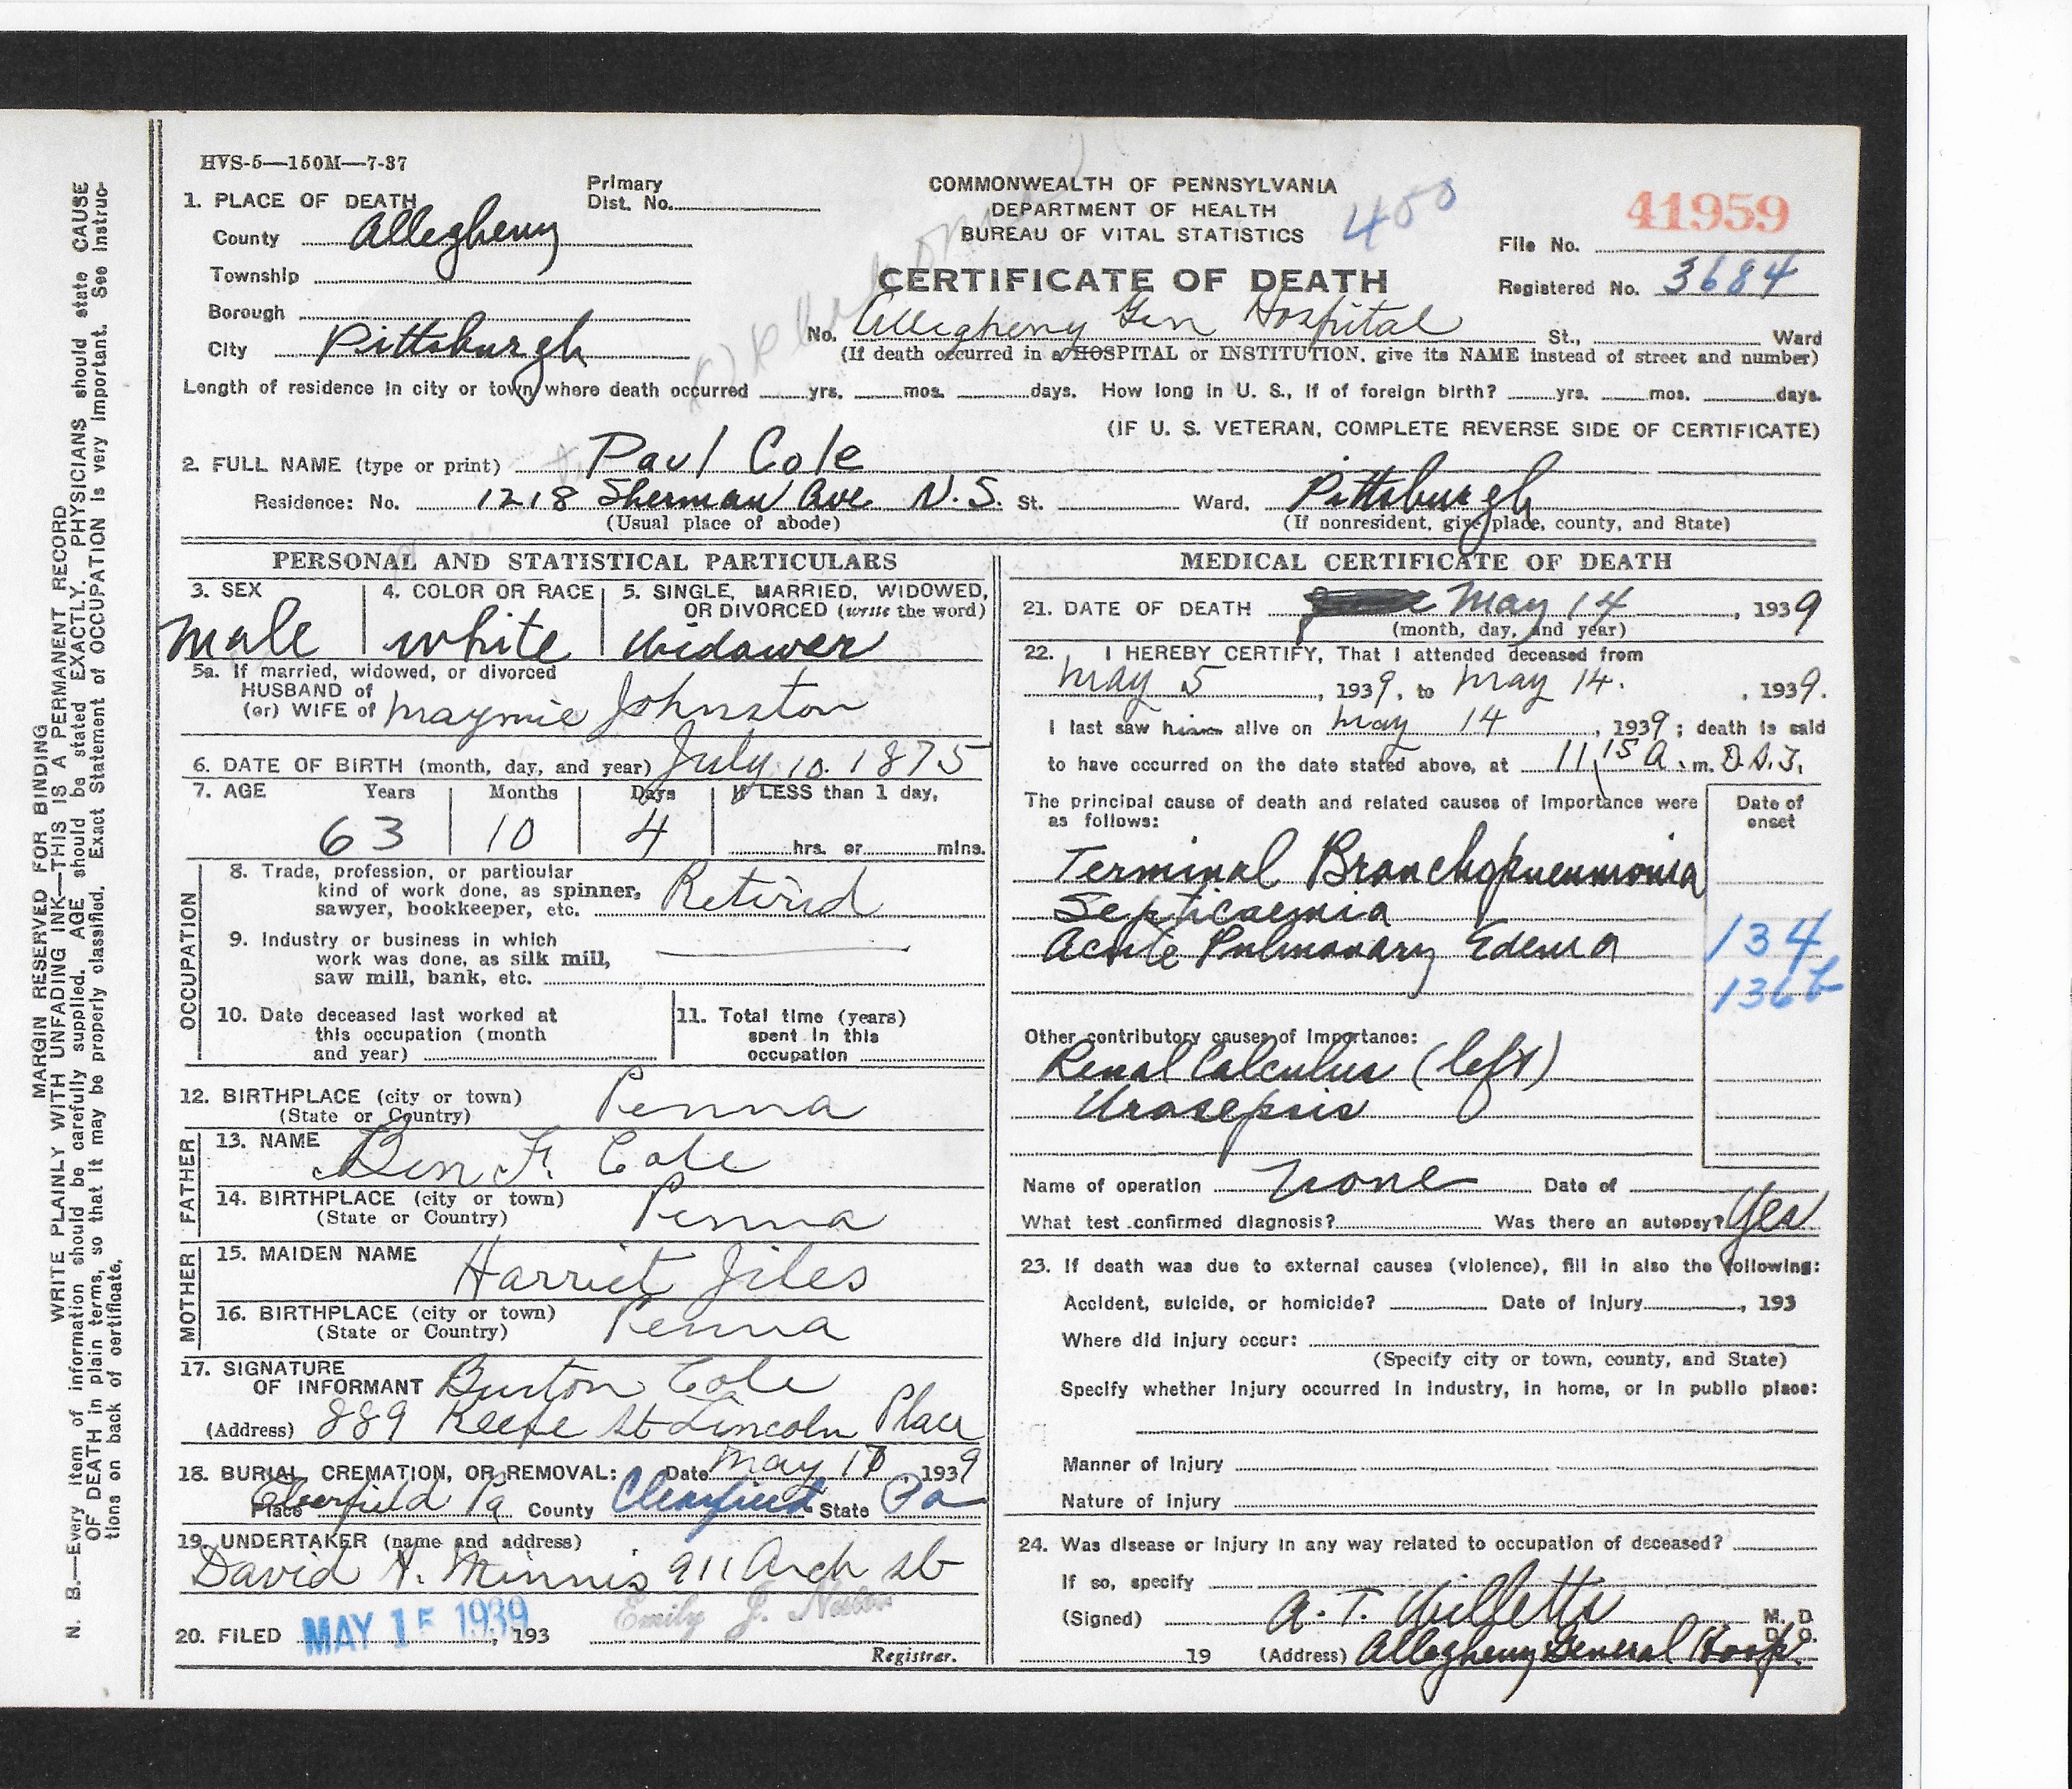 HVS-5—150M—7-37
1. PLACE OF DEATH
Primary
Dist. No.
County Allegheny
Township
Borough
City Pittsburgh
COMMONWEALTH OF PENNSYLVANIA
DEPARTMENT OF HEALTH
BUREAU OF VITAL STATISTICS
400
CERTIFICATE OF DEATH
41959
File No.
Registered No. 3684
No. Allegheny Gen Hospital St., Ward
(If death occurred in a HOSPITAL or INSTITUTION, give its NAME instead of street and number)
Length of residence in city or town where death occurred yrs. mos. days. How long in U. S., if of foreign birth? yrs. mos. days.
(IF U. S. VETERAN, COMPLETE REVERSE SIDE OF CERTIFICATE)
2. FULL NAME (type or print) Paul Cole
Residence: No. 1218 Sherman Ave N.S. St. Ward. Pittsburgh
(Usual place of abode) (If nonresident, give place, county, and State)
PERSONAL AND STATISTICAL PARTICULARS
3. SEX 4. COLOR OR RACE 5. SINGLE, MARRIED, WIDOWED,
OR DIVORCED (write the word)
Male white Widower
5a. If married, widowed, or divorced
HUSBAND of
(or) WIFE of Maymie Johnston
6. DATE OF BIRTH (month, day, and year) July 10. 1875
7. AGE Years Months Days If LESS than 1 day,
63 10 4 hrs. or mins.
OCCUPATION
8. Trade, profession, or particular
kind of work done, as spinner,
sawyer, bookkeeper, etc. Retired
9. Industry or business in which
work was done, as silk mill,
saw mill, bank, etc.
10. Date deceased last worked at
this occupation (month
and year)
11. Total time (years)
spent in this
occupation
12. BIRTHPLACE (city or town) Penna
(State or Country)
FATHER
13. NAME Ben F. Cole
14. BIRTHPLACE (city or town) Penna
(State or Country)
MOTHER
15. MAIDEN NAME Harriet Jiles
16. BIRTHPLACE (city or town) Penna
(State or Country)
17. SIGNATURE
OF INFORMANT Burton Cole
(Address) 889 Keefe St Lincoln Place
18. BURIAL, CREMATION, OR REMOVAL: Date May 17 1939
Place Pa County Clearfield State Pa
19. UNDERTAKER (name and address)
David N. Minnis 911 Arch St
20. FILED MAY 15 1939, 193 Emily J.
Registrar.
MEDICAL CERTIFICATE OF DEATH
21. DATE OF DEATH May 14, 1939
(month, day, and year)
22. I HEREBY CERTIFY, That I attended deceased from
May 5, 1939, to May 14., 1939.
I last saw him alive on May 14, 1939; death is said
to have occurred on the date stated above, at 11.15 A. m. D.S.T.
The principal cause of death and related causes of importance were
as follows:
Date of
onset
Terminal Bronchopneumonia
Septicaemia
Acute Pulmonary Edema 134
136b
Other contributory causes of importance:
Renal Calculus (left)
Urosepsis
Name of operation None Date of
What test confirmed diagnosis? Was there an autopsy? Yes
23. If death was due to external causes (violence), fill in also the following:
Accident, suicide, or homicide? Date of injury, 193
Where did injury occur:
(Specify city or town, county, and State)
Specify whether injury occurred in industry, in home, or in public place:
Manner of injury
Nature of injury
24. Was disease or injury in any way related to occupation of deceased?
If so, specify
(Signed) A. T. Willetts M. D.
D. O.
19 (Address) Allegheny General Hosp.
MARGIN RESERVED FOR BINDING
WRITE PLAINLY WITH UNFADING INK—THIS IS A PERMANENT RECORD
N. B.—Every item of information should be carefully supplied. AGE should be stated EXACTLY. PHYSICIANS should state CAUSE
OF DEATH in plain terms, so that it may be properly classified. Exact Statement of OCCUPATION is very important. See instruc-
tions on back of certificate.